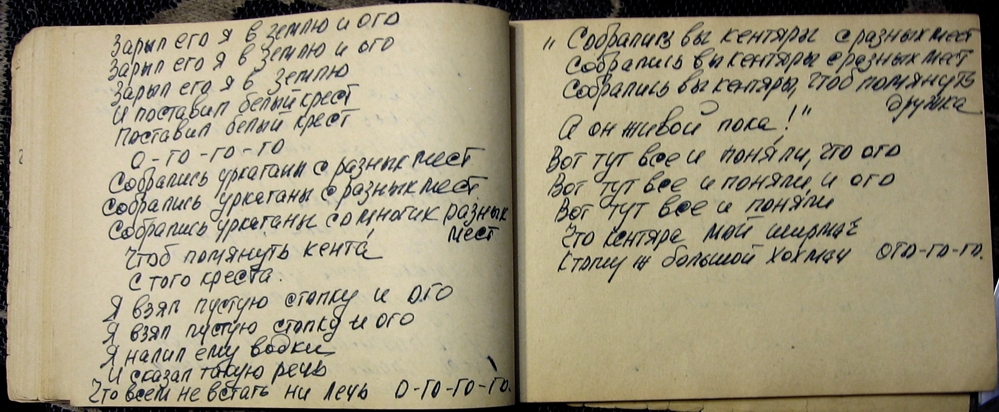 Зарыл его я в землю и ого
Зарыл его я в землю и ого
Зарыл его я в землю
И поставил белый крест
Поставил белый крест
О-го-го-го
Собрались уркаганы с разных мест
Собрались уркаганы с разных мест
Собрались уркаганы со многих разных
мест
Чтоб помянуть кента́
С того креста.
Я взял пустую стопку и ого
Я взял пустую стопку и ого
Я налил ему водки
И сказал такую речь
Что всем не встать ни лечь О-го-го-го.
„Собрались вы кентяры с разных мест
Собрались вы кентяры с разных мест
Собрались вы кентяры, чтоб помянуть
дружка
А он живой пока!"
Вот тут все и поняли, что ого
Вот тут все и поняли, и ого
Вот тут все и поняли
Что кентяра мой ширмач
К тому ж большой хохмач ого-го-го.